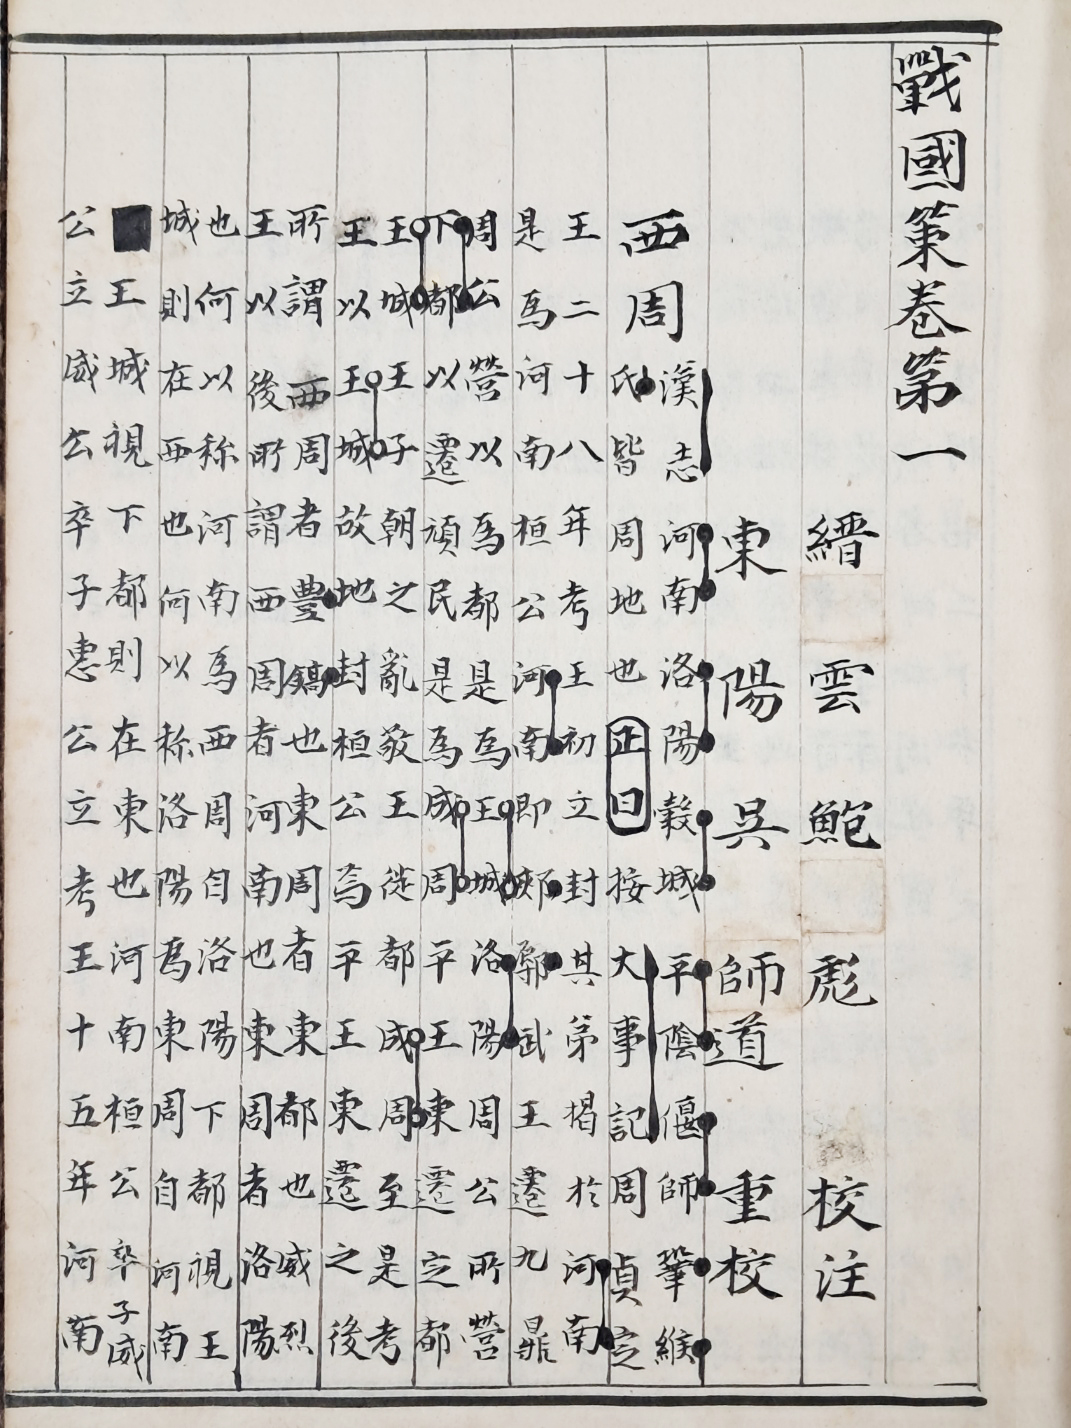 戰國策卷第一
縉雲鮑彪校注
東陽吳師道重校
西周
漢志河南洛陽穀城平陰偃師鞏緱
氏皆周地也正曰按大事記周貞定
王二十八年考王初立封其弟揭於河南
是為河南桓公河南即郟鄏武王遷九鼎
周公營以為都是為王城洛陽周公所營
下都以遷頑民是為成周平王東遷定都
王城王子朝之亂敬王徙都成周至是考
王以王城故地封桓公焉平王東遷之後
所謂西周者豐鎬也東周者東都也威烈
王以後所謂西周者河南也東周者洛陽
也何以称河南為西周自洛陽下都視王
城則在西也何以称洛陽為東周自河南
王城視下都則在東也河南桓公卒子威
公立威公卒子惠公立考王十五年河南